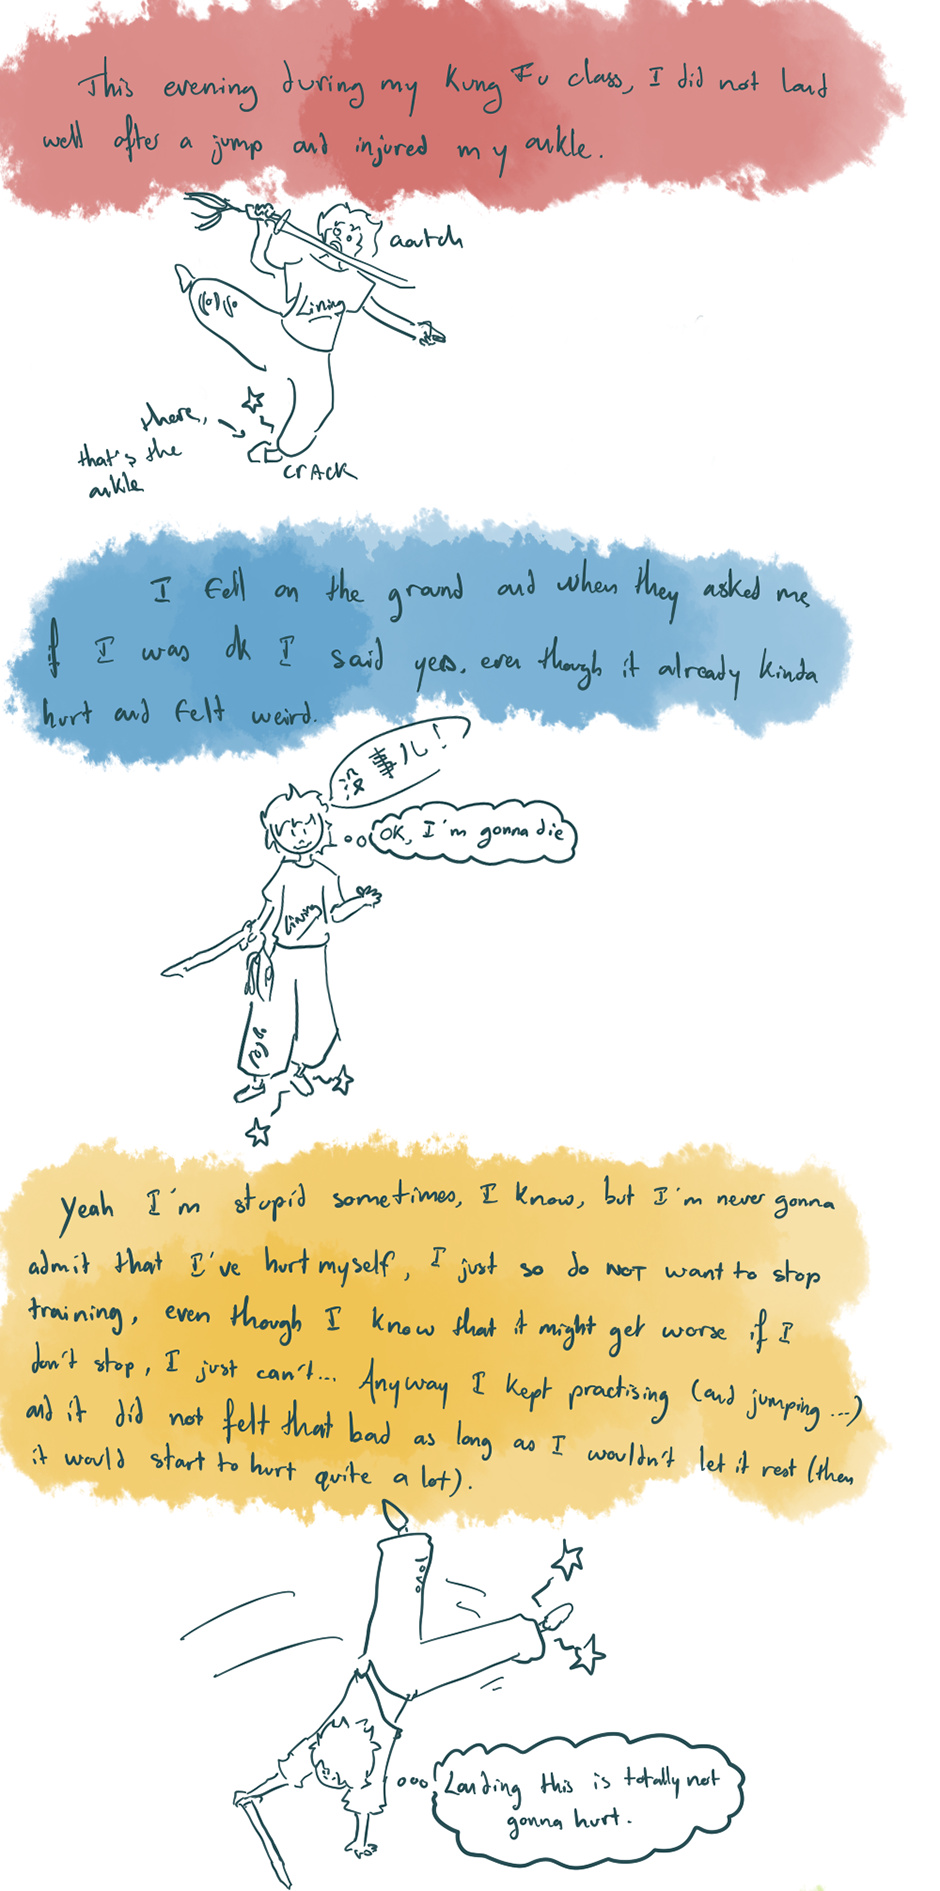 This evening during my Kung Fu class, I did not land
well after a jump and injured my ankle.
aoutch
Lining
there,
that's the
ankle
CRACK
I fell on the ground and when they asked me
if I was ok I said yes, even though it already kinda
hurt and felt weird.
没事儿!
OK, I'm gonna die
Lining
Yeah I'm stupid sometimes, I know, but I'm never gonna
admit that I've hurt myself, I just so do NOT want to stop
training, even though I know that it might get worse if I
don't stop, I just can't... Anyway I kept practising (and jumping...)
and it did not felt that bad as long as I wouldn't let it rest (then
it would start to hurt quite a lot).
Landing this is totally not
gonna hurt.